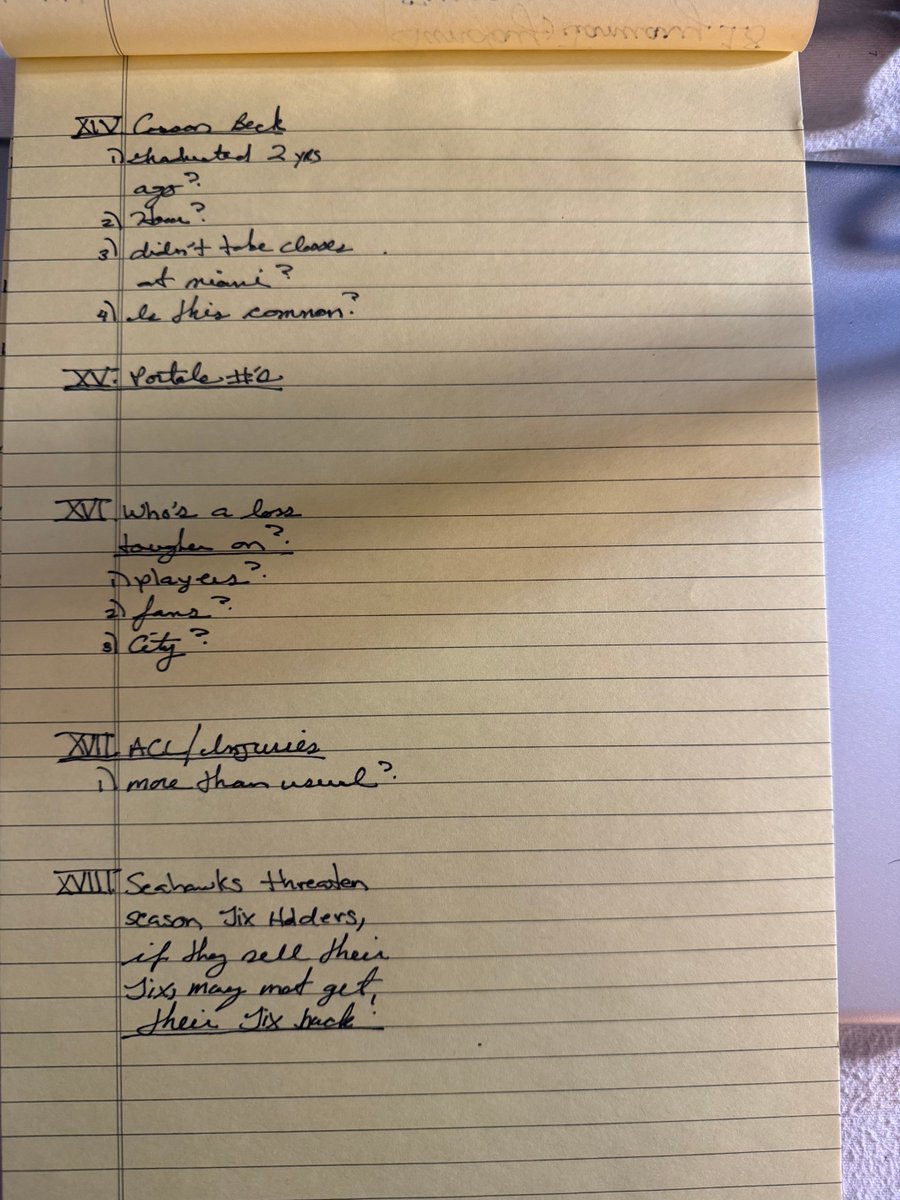 XIV. Carson Beck
1) Graduated 2 yrs
ago?
2) How?
3) didn't take classes
at miami?
4) Is this common?
XV. Portal #'s
XVI. Who's a loss
tougher on?
1) players?
2) fans?
3) City?
XVII. ACL/Injuries
1) more than usual?
XVIII. Seahawks threaten
season Tix Holders,
if they sell their
Tix, may not get
their Tix back!